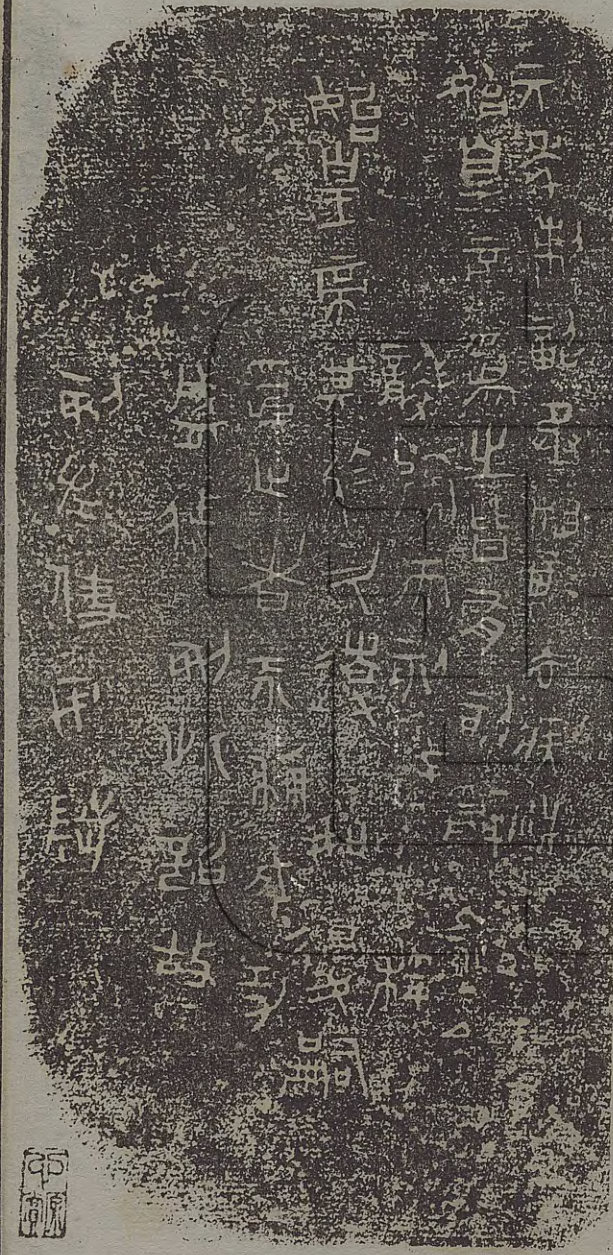 元年制詔丞相斯去疾法
始皇帝為之皆有刻辭焉今
襲號而刻辭不稱
始皇帝其於久遠也如後嗣
為之者不稱成功
盛德刻此詔故
刻左使毋疑